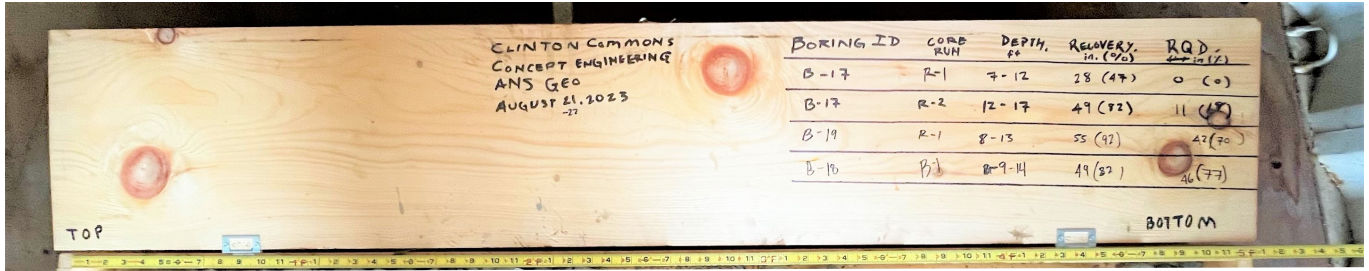 CLINTON COMMONS
CONCEPT ENGINEERING
ANS GEO
AUGUST 21, 2023
-22
BORING ID CORE RUN DEPTH, ft RECOVERY, in. (%) RQD, in (%)
B-17 R-1 7-12 28 (47) 0 (0)
B-17 R-2 12-17 49 (82) 11 (18)
B-19 R-1 8-13 55 (92) 42 (70
B-18 R-1 9-14 49 (82) 46 (77)
TOP
BOTTOM